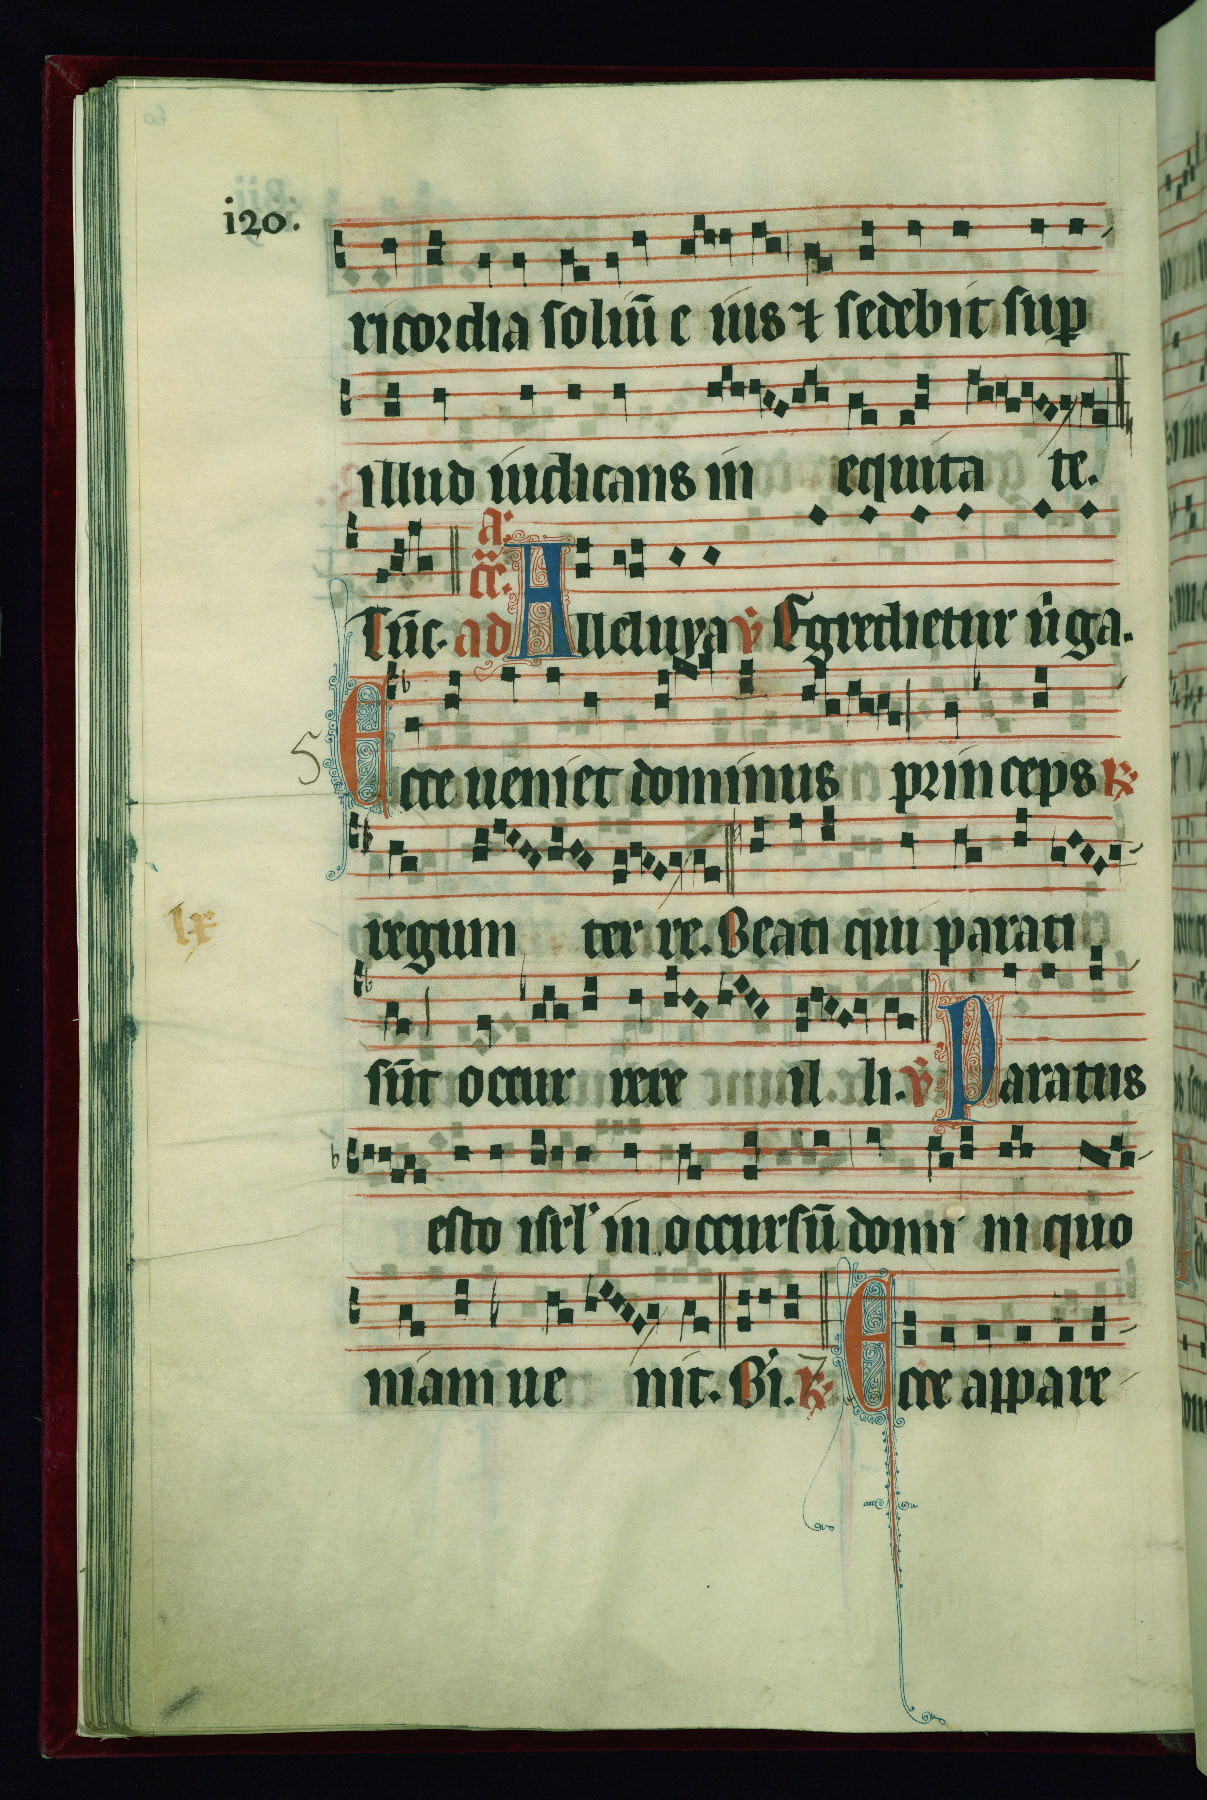 i20.
ricordia soliū e ius ⁊ sedebit sup
illud iudicans in equita te.
a.
Tūc. ad Alleluya v̇ Egredietur ůga.
5
Ecce ueniet dominus princeps ℟
regum ter re. Beati qui parati
lx
sūt occur rere il li. v̇ Paratus
esto isrl' in occursū domi ni quo
niam ue nit. Bi. ℟ Ecce appare